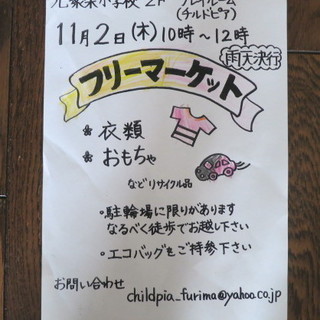 小学校 2F プレイルーム
(チルドピア)
11月2日(木)10時~12時
雨天決行
フリーマーケット
衣類
おもちゃ
などリサイクル品
・駐輪場に限りがあります
なるべく徒歩でお越し下さい
・エコバッグをご持参下さい
お問い合わせ
childpia_furima@yahoo.co.jp